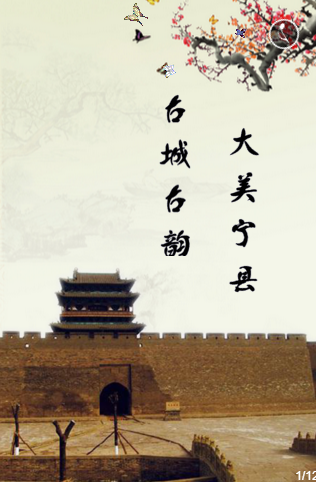 大美宁县
古城古韵
1/12